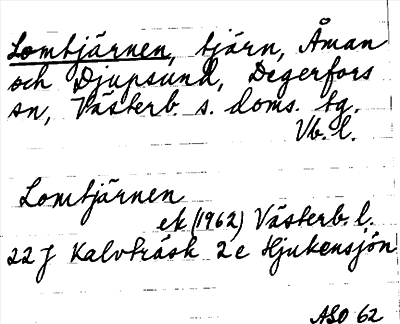 Lomtjärnen, tjärn, Åman
och Djupsund, Degerfors
sn, Västerb. s. doms. tg.
Vb. l.
Lomtjärnen
ek (1962) Västerb. l.
22 J Kalvträsk 2 e Hjukensjön
ASO 62